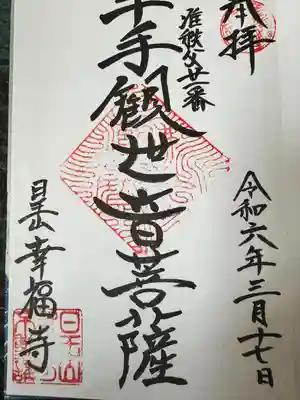 奉拝
准秩父廿一番
千手観世音菩薩
令和六年三月十七日
幸福寺